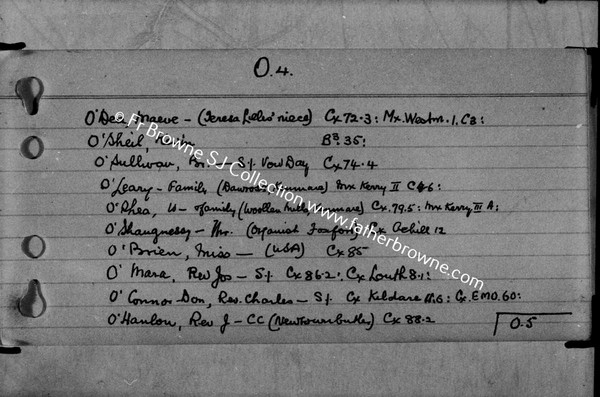 O.4.
O'Dea, Maeve - (Teresa Lillis' niece) Cx 72.3: Mx. Westm. 1. C3:
O'Sheil, B3 35:
O'Sullivan, Br. - S.J. Vow Day Cx 74.4
O'Leary - Family Mx Kerry II C46:
O'Shea, - & family (Woollen Mills, Kenmare) Cx. 79.5: Mx Kerry III A:
O'Shaugnessy - Mr. (Organist Foxford) Cx Achill 12
O'Brien, Miss - (USA) Cx 85
O'Mara, Rev Jos - S.J. Cx 86.2: Cx Louth 8.1:
O'Connor Don, Rev. Charles - S.J. Cx Kildare 11.6: Cx. EMO. 60:
O'Hanlon, Rev J - CC (Newtownbutler) Cx 88.2
O.5
© Fr Browne SJ Collection www.fatherbrowne.com